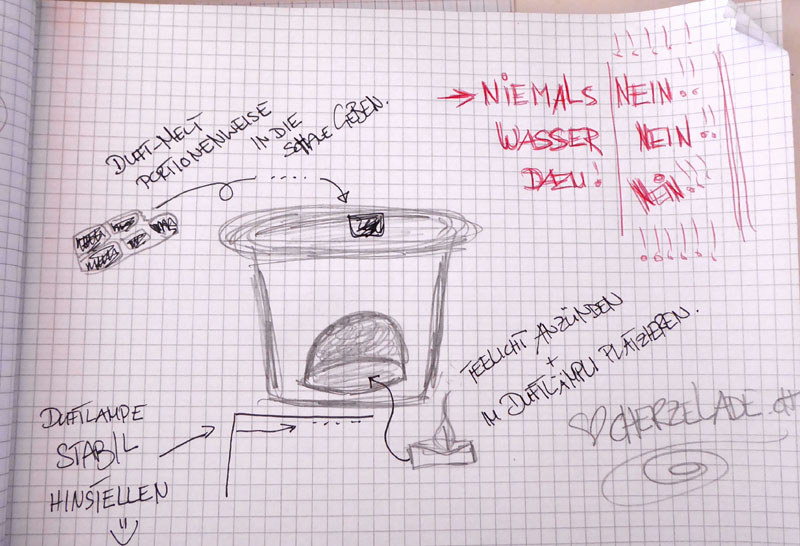 DUFT-MELT
PORTIONENWEISE
IN DIE
SCHALE GEBEN.
→ NIEMALS
WASSER
DAZU!
NEIN!!
NEIN!!
NEIN!!!
TEELICHT ANZÜNDEN
+
IM DUFTLÄMPLI PLATZIEREN.
DUFTLAMPE
STABIL
HINSTELLEN
CHERZELADE.CH